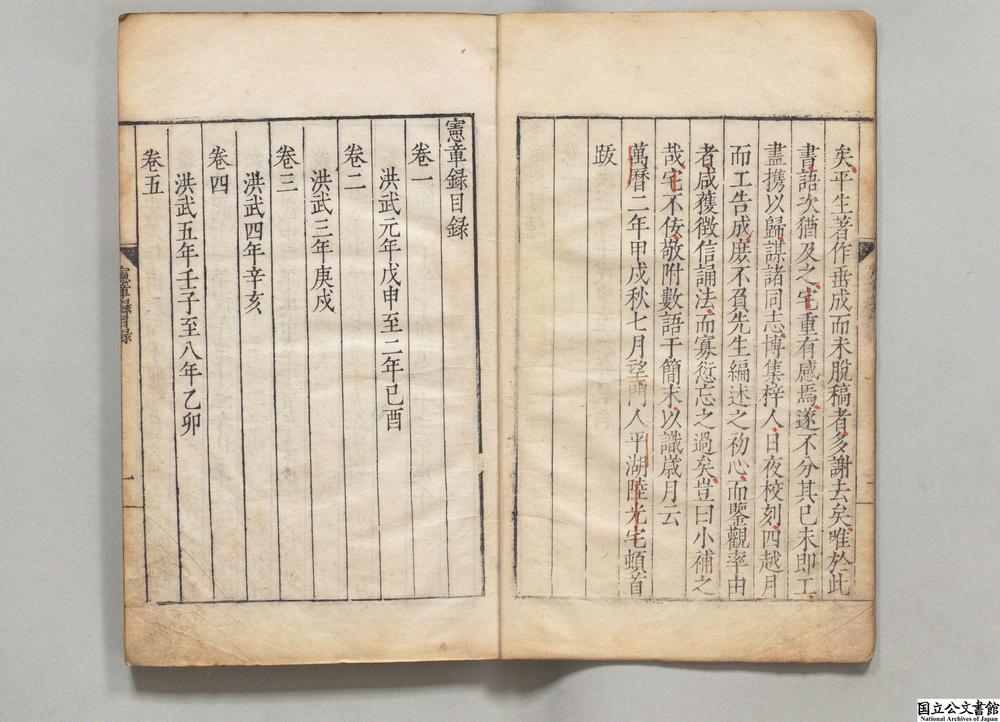 矣平生著作垂成而未脫稿者多謝去矣唯於此
書語次猶及之宅重有感焉遂不分其已未即工
盡携以歸謀諸同志博集梓人日夜校刻四越月
而工告成庶不負先生編述之初心而鑒觀率由
者咸獲徵信誦法而寡愆忘之過矣豈曰小補之
哉宅不佞敬附數語于簡末以識歲月云
萬曆二年甲戌秋七月望門人平湖陸光宅頓首
跋
憲章錄目録
卷一
洪武元年戊申至二年己酉
卷二
洪武三年庚戌
卷三
洪武四年辛亥
卷四
洪武五年壬子至八年乙卯
卷五
憲章錄目録
一
国立公文書館
National Archives of Japan